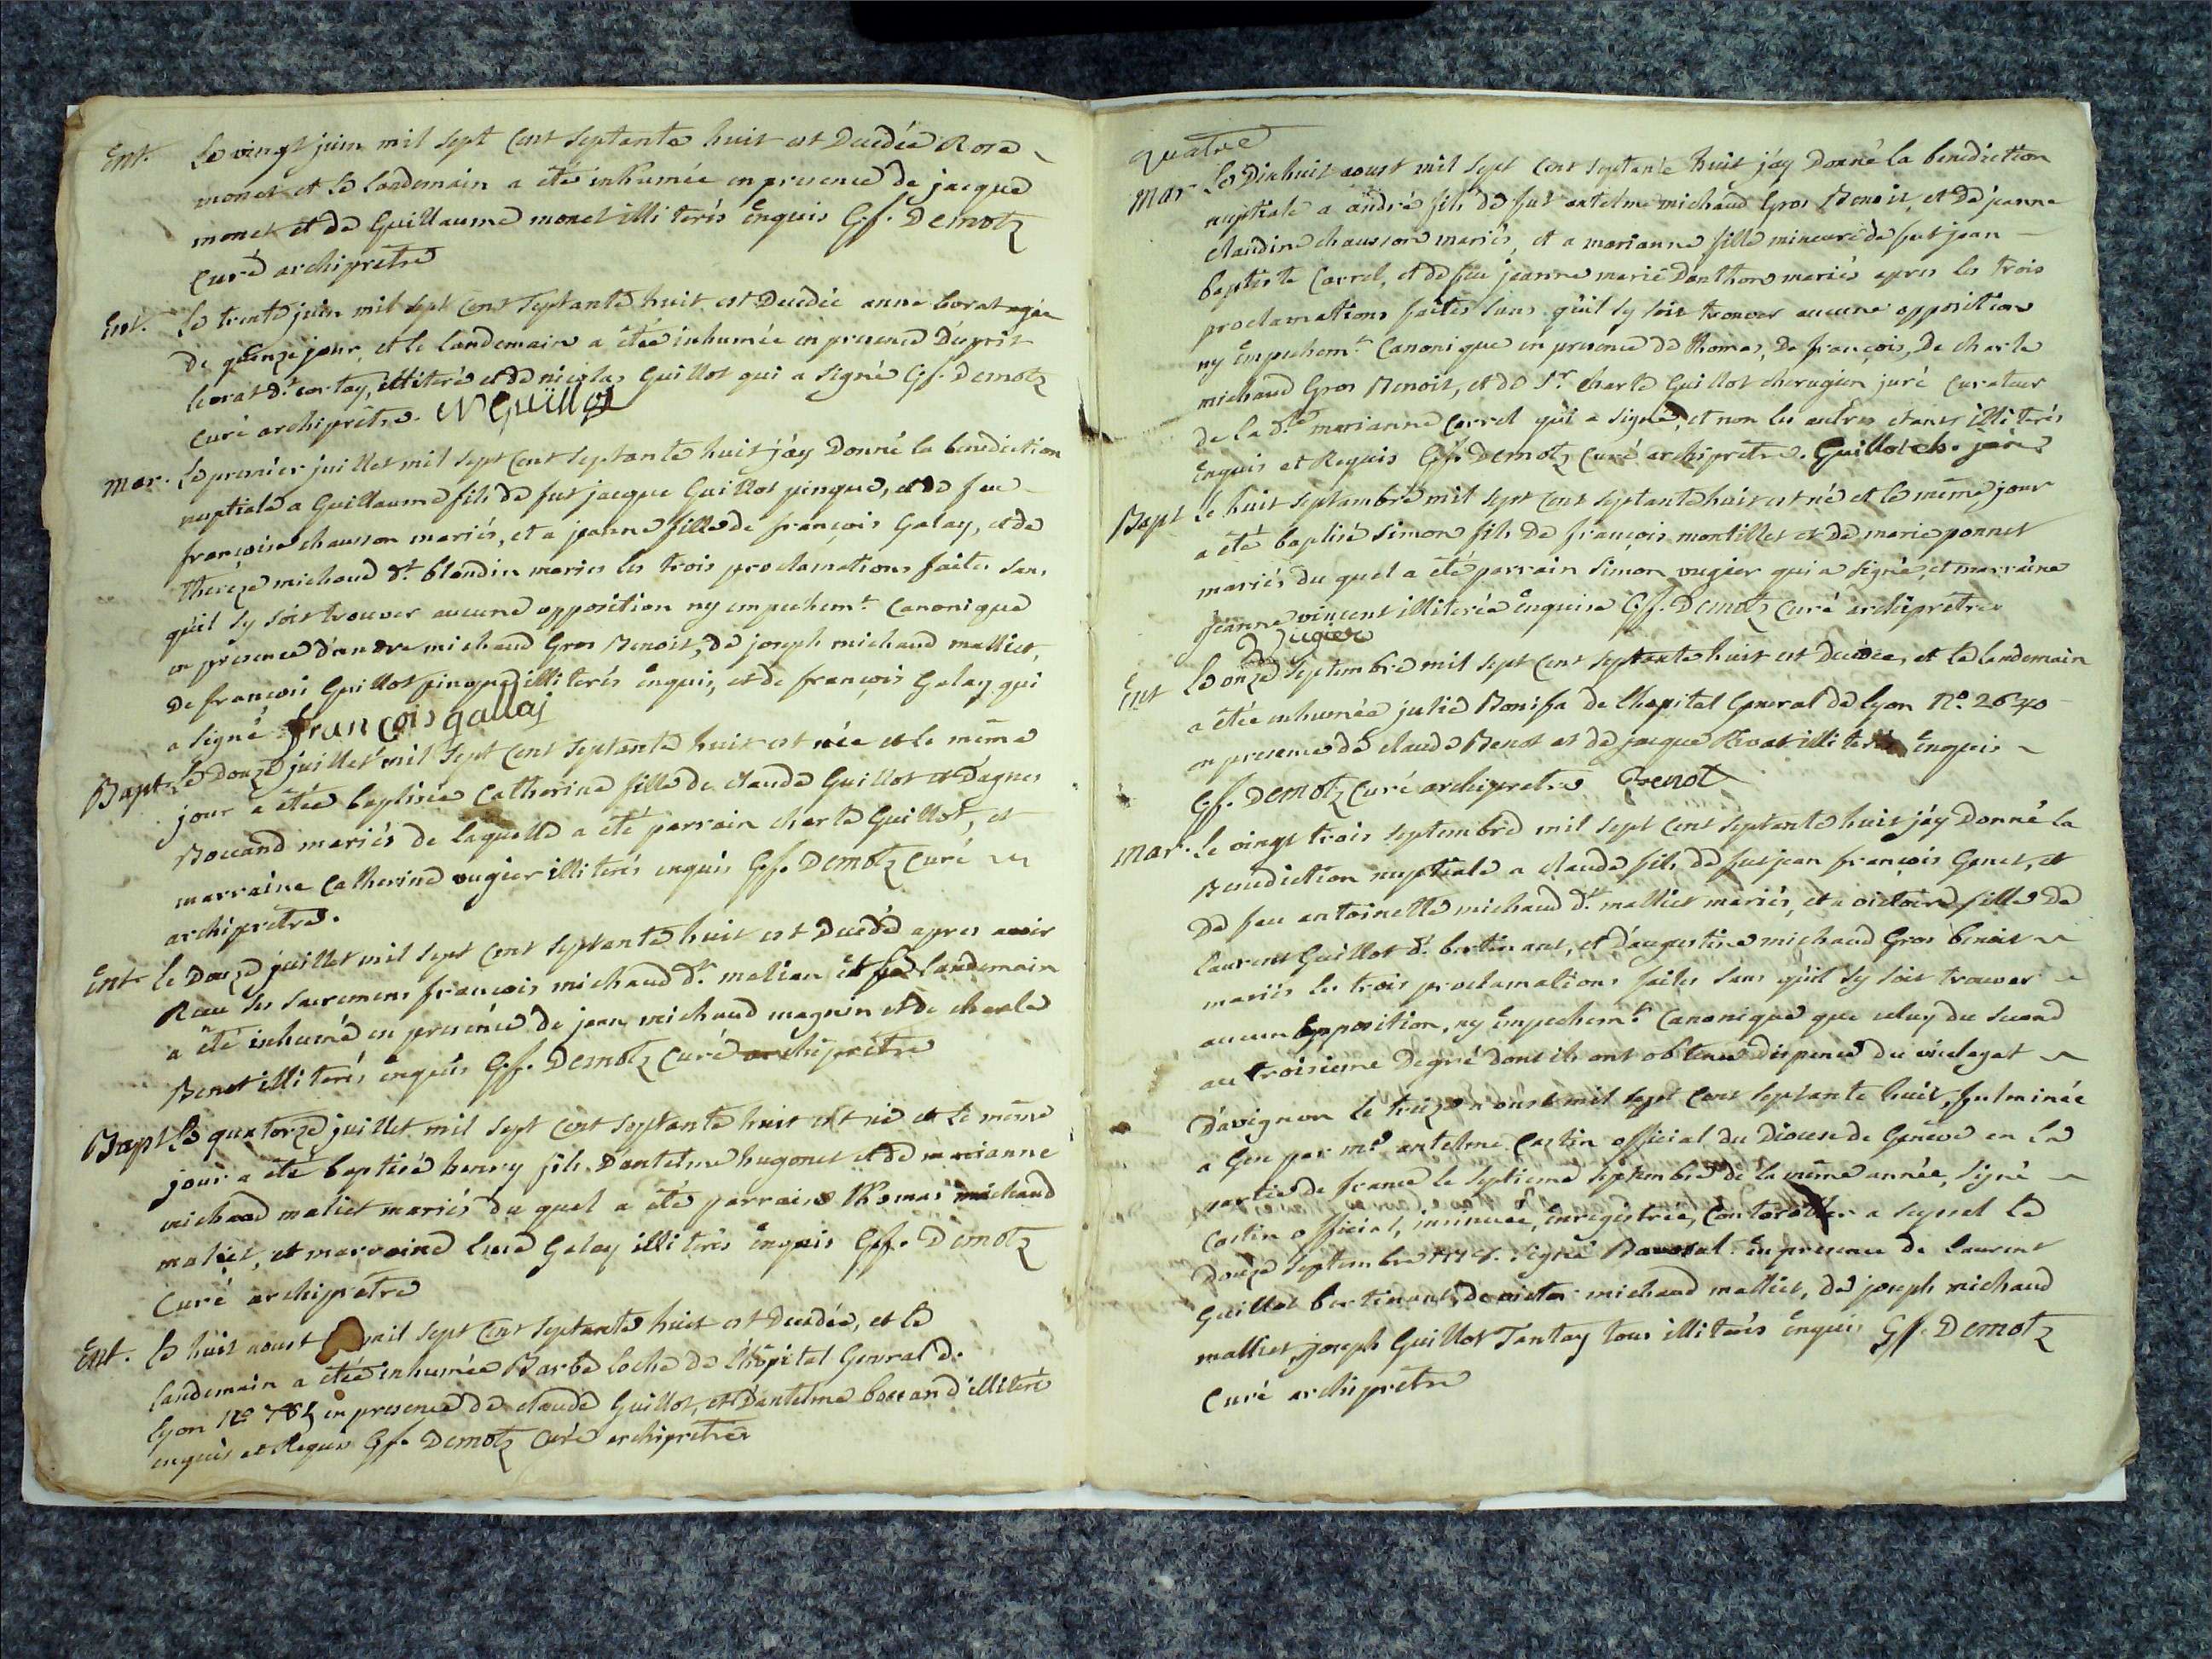 Ent. Le vingt juin mil sept cent septante huit est decédée Rose
monet et le landemain a été inhumée en presence de jacque
monet et de Guillaume monet illiterés enquis Gf. Demotz
curé archiprêtre
Ent. Le trente juin mil sept cent septante huit est decédée anne borat agée
de quinze jour, et le landemain a étée inhumée en presence
borat dt illiteré et de nicolas Guillot qui a signé Gf. Demotz
curé archiprêtre. N Guillot
mar. Le premier juillet mil sept cent septante huit j'ay donné la benediction
nuptiale a Guillaume fils de fut jacque Guillot pinque, et de feue
françoise chausson mariés, et a jeanne fille de françois Galay, et de
thereze michaud dt. blandin maries les trois proclamations faites sans
qu'il sy soit trouver aucune opposition ny empechemt. canonique
en presence d'andre michaud Gros Benoit, de joseph michaud malliet,
de françois Guillot pinque illiterés enquis, et de françois Galay qui
a signé françois gallaj
Bapt Le douze juillet mil sept cent septante huit est née et le même
jour a étée baptisée Catherine fille de claude Guillot et d'agnes
Boccand mariés de laquelle a été parrain charle Guillot, et
marraine Catherine vugier illiterés enquis Gf. Demotz curé
archiprêtre.
Ent. le douze juillet mil sept cent septante huit est decédé apres avoir
Recu ses sacremens françois michaud dt. et le landemain
a été inhumé en presence de jean michaud magnin et de charle
Benet illiterés enquis Gf. Demotz curé archiprêtre
Bapt Le quatorze juillet mil sept cent septante huit est né et le même
jour a été baptisé henry fils d'antelme hugonet et de marianne
michaud maliet mariés du quel a été parrain thomas michaud
maliet, et marraine Galay illiterés enquis Gf. Demotz
Curé archiprêtre
Ent. le huit aoust mil sept cent septante huit est decedée, et le
landemain a étée inhumée Barbe loche de l'hôpital General de
lyon No en presence de claude Guillot, et d'antelme boccand illiteré
enquis et Requis Gf. Demotz Curé archiprêtre
quatre
mar Le Dixhuit aoust mil sept cent septante huit j'ay donné la benediction
nuptiale a andré fils de fut antelme michaud Gros Benoit, et de jeanne
claudine chausson mariés, et a marianne fille mineure de fut jean
baptiste Carrel, et de feue jeanne marie Danthon mariés apres les trois
proclamations faites sans qu'il sy soit trouver aucune opposition
ny empechemt. canonique en presence de thomas, de françois, de charle
michaud Gros Benoit, et de Sr. charle Guillot chirugien juré curateur
de la dte marianne Carrel qui a signé, et non les autres etant illiterés
enquis et Requis Gf. Demotz curé archiprêtre. Guillot ch. juré
Bapt Le huit septambre mil sept cent septante huit est né et le même jour
a été baptisé simon fils de françois montillet et de marie ponnet
mariés du quel a été parrain simon vugier qui a signé, et marraine
jeanne vincent illiterée enquise Gf. Demotz curé archiprêtre
vugier
Ent Le onze septembre mil sept cent septante huit est decédée, et le landemain
a étée inhumée julie Bonifa de l'hopital General de lyon No. 2640
en presence de claude Benot et de jacque illiterés enquis
Gf. Demotz curé archiprêtre Benot
mar. Le vingt trois septembre mil sept cent septante huit j'ay donné la
Benediction nuptiale a claude fils de fut jean françois Genet, et
de feu antoinette michaud dt. malliet mariés, et a victoire fille de
laurent Guillot dt. bertinant, et d'augustine michaud Gros benoit
mariés les trois proclamations faites sans qu'il sy soit trouver
aucun opposition, ny empechemt. canonique que celuy du second
au troisieme degré dont ils ont obtenu dispence du vicelegat
d'avignon le treize aoust mil sept cent septante huit, fulminée
a Gex par me antelme Castin official du Diocese de Geneve en la
partie de france le septieme septembre de la même année, signé
Castin official, insinuée, enregistrée, Contorollée a seyssel le
douze septembre signé en presence de laurent
Guillot bertinant, de victor michaud malliet, de joseph michaud
malliet, joseph Guillot Tantay tous illiterés enquis Gf. Demotz
Curé archiprêtre